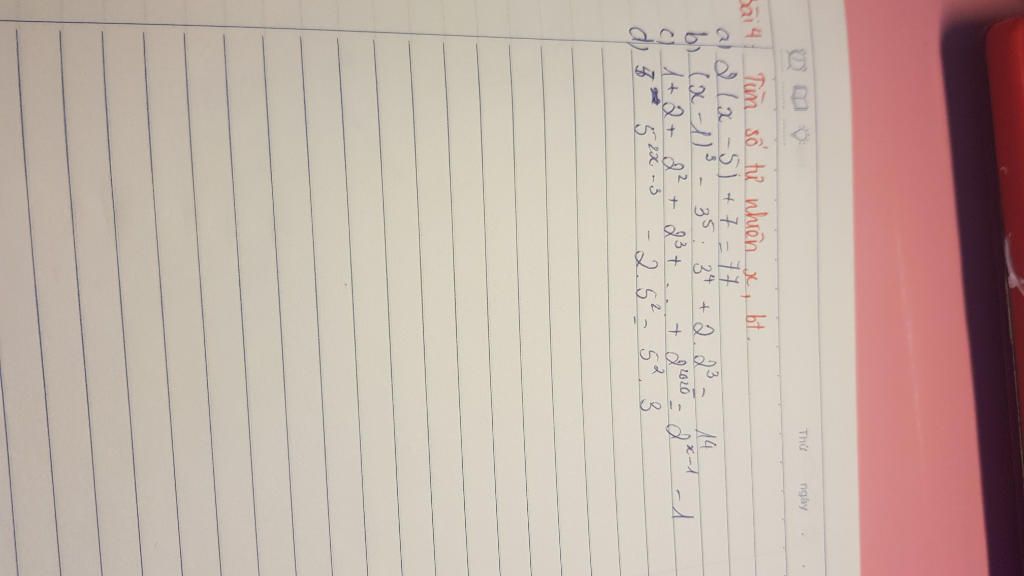 Thứ ngày
Bài 4: Tìm số tự nhiên x, bt.
a) 2(x - 5) + 7 = 77
b) (x - 1)³ - 3⁵ : 3⁴ + 2.2³ = 14
c) 1 + 2 + 2² + 2³ + ... + 2²⁰²⁰ = 2ˣ⁻¹ - 1
d) 5²ˣ⁻³ - 2.5² = 5².3